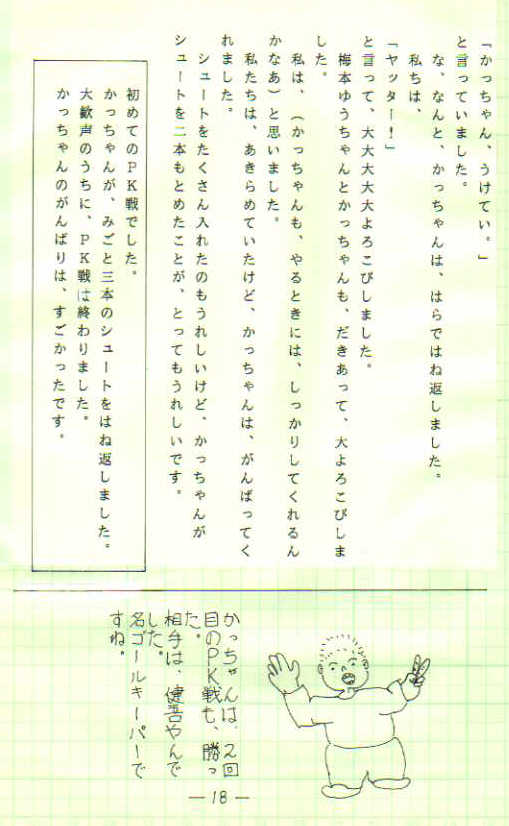 「かっちゃん、うけてい。」
と言っていました。
な、なんと、かっちゃんは、はらではね返しました。
私たちは、
「ヤッター！」
と言って、大大大大大よろこびしました。
梅本ゆうちゃんとかっちゃんも、だきあって、大よろこびしま
した。
私は、（かっちゃんも、やるときには、しっかりしてくれるん
かなあ）と思いました。
私たちは、あきらめていたけど、かっちゃんは、がんばってく
れました。
シュートをたくさん入れたのもうれしいけど、かっちゃんが
シュートを二本もとめたことが、とってもうれしいです。
初めてのＰＫ戦でした。
かっちゃんが、みごと三本のシュートをはね返しました。
大歓声のうちに、ＰＫ戦は終わりました。
かっちゃんのがんばりは、すごかったです。
かっちゃんは、2回
目のPK戦も、勝っ
た。
相手は、健吾やんで
した。
名ゴールキーパーで
すね。
—18—